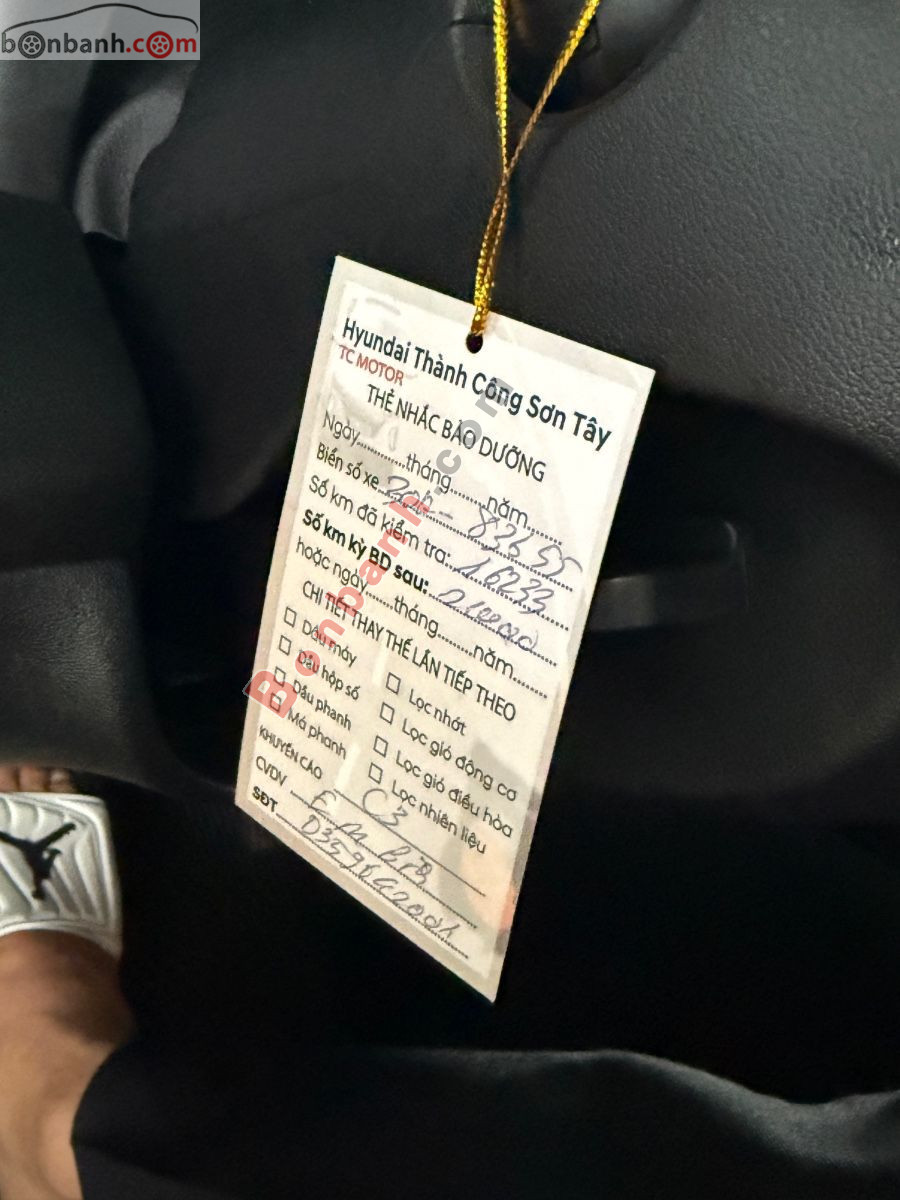 bonbanh.com
Hyundai Thành Công Sơn Tây
TC MOTOR
THẺ NHẮC BẢO DƯỠNG
Ngày............tháng.........năm.........
Biển số xe 30h - 83655
Số km đã kiểm tra: 16233
Số km kỳ BD sau: 21000
hoặc ngày.......tháng.........năm.........
CHI TIẾT THAY THẾ LẦN TIẾP THEO
Dầu máy
Lọc nhớt
Dầu hộp số
Lọc gió động cơ
Dầu phanh
Lọc gió điều hòa
Má phanh
Lọc nhiên liệu
KHUYẾN CÁO C3
CVDV
SĐT
Bonbanh.com